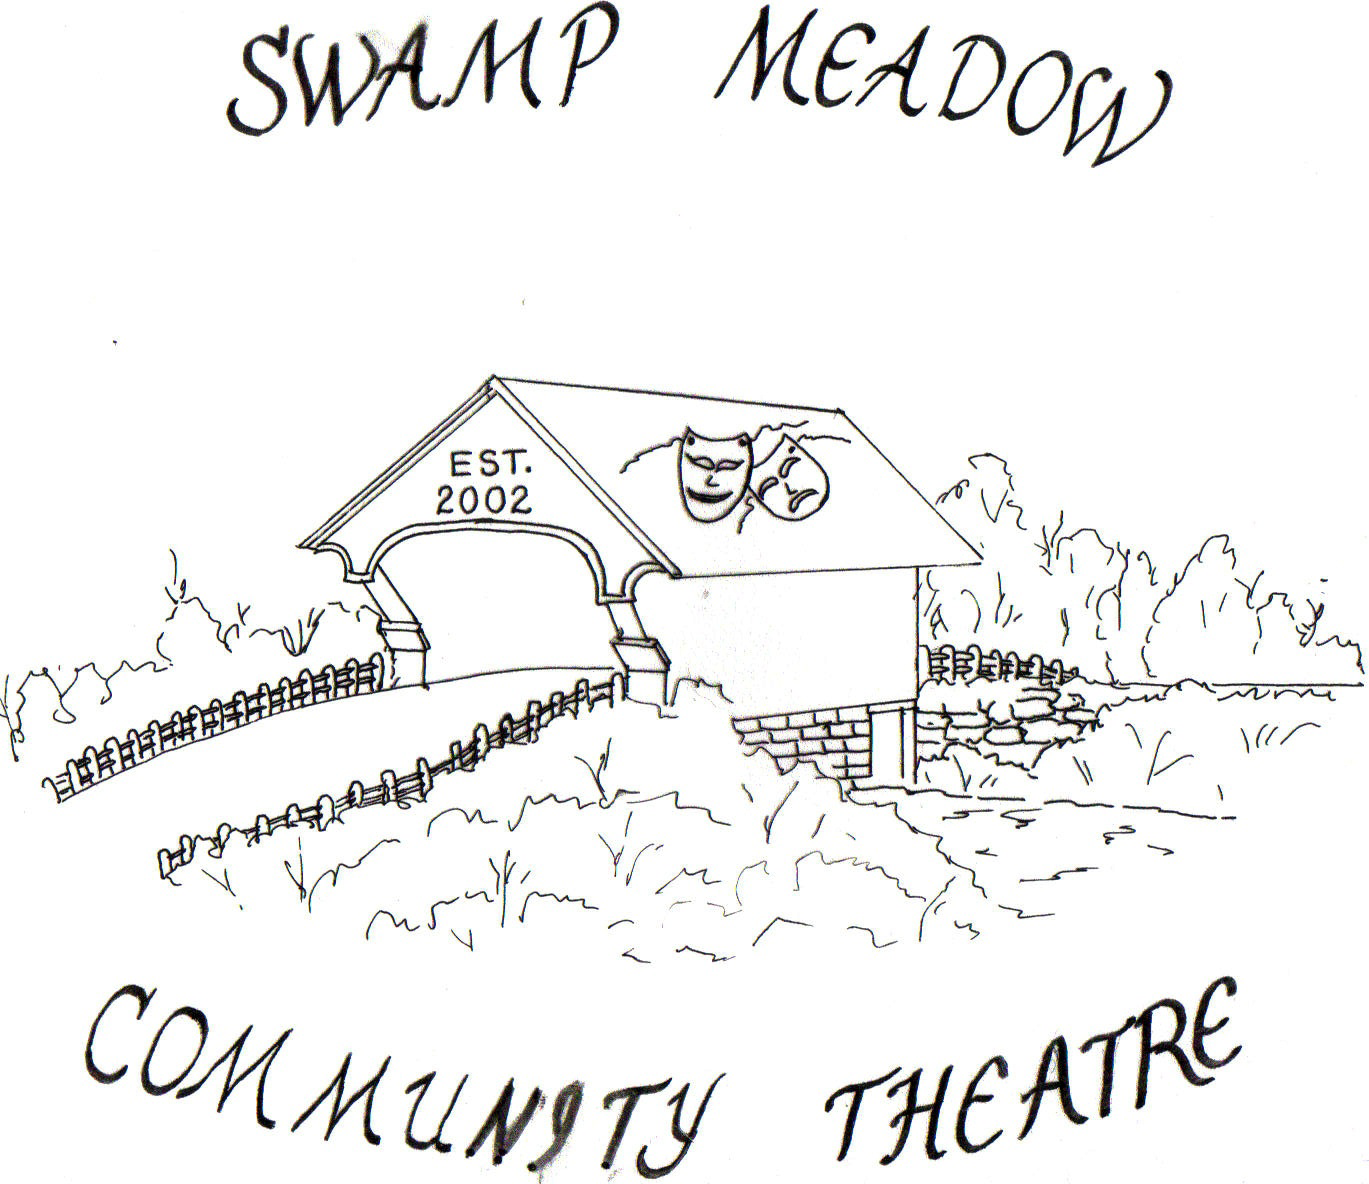 SWAMP MEADOW
EST.
2002
COMMUNITY THEATRE